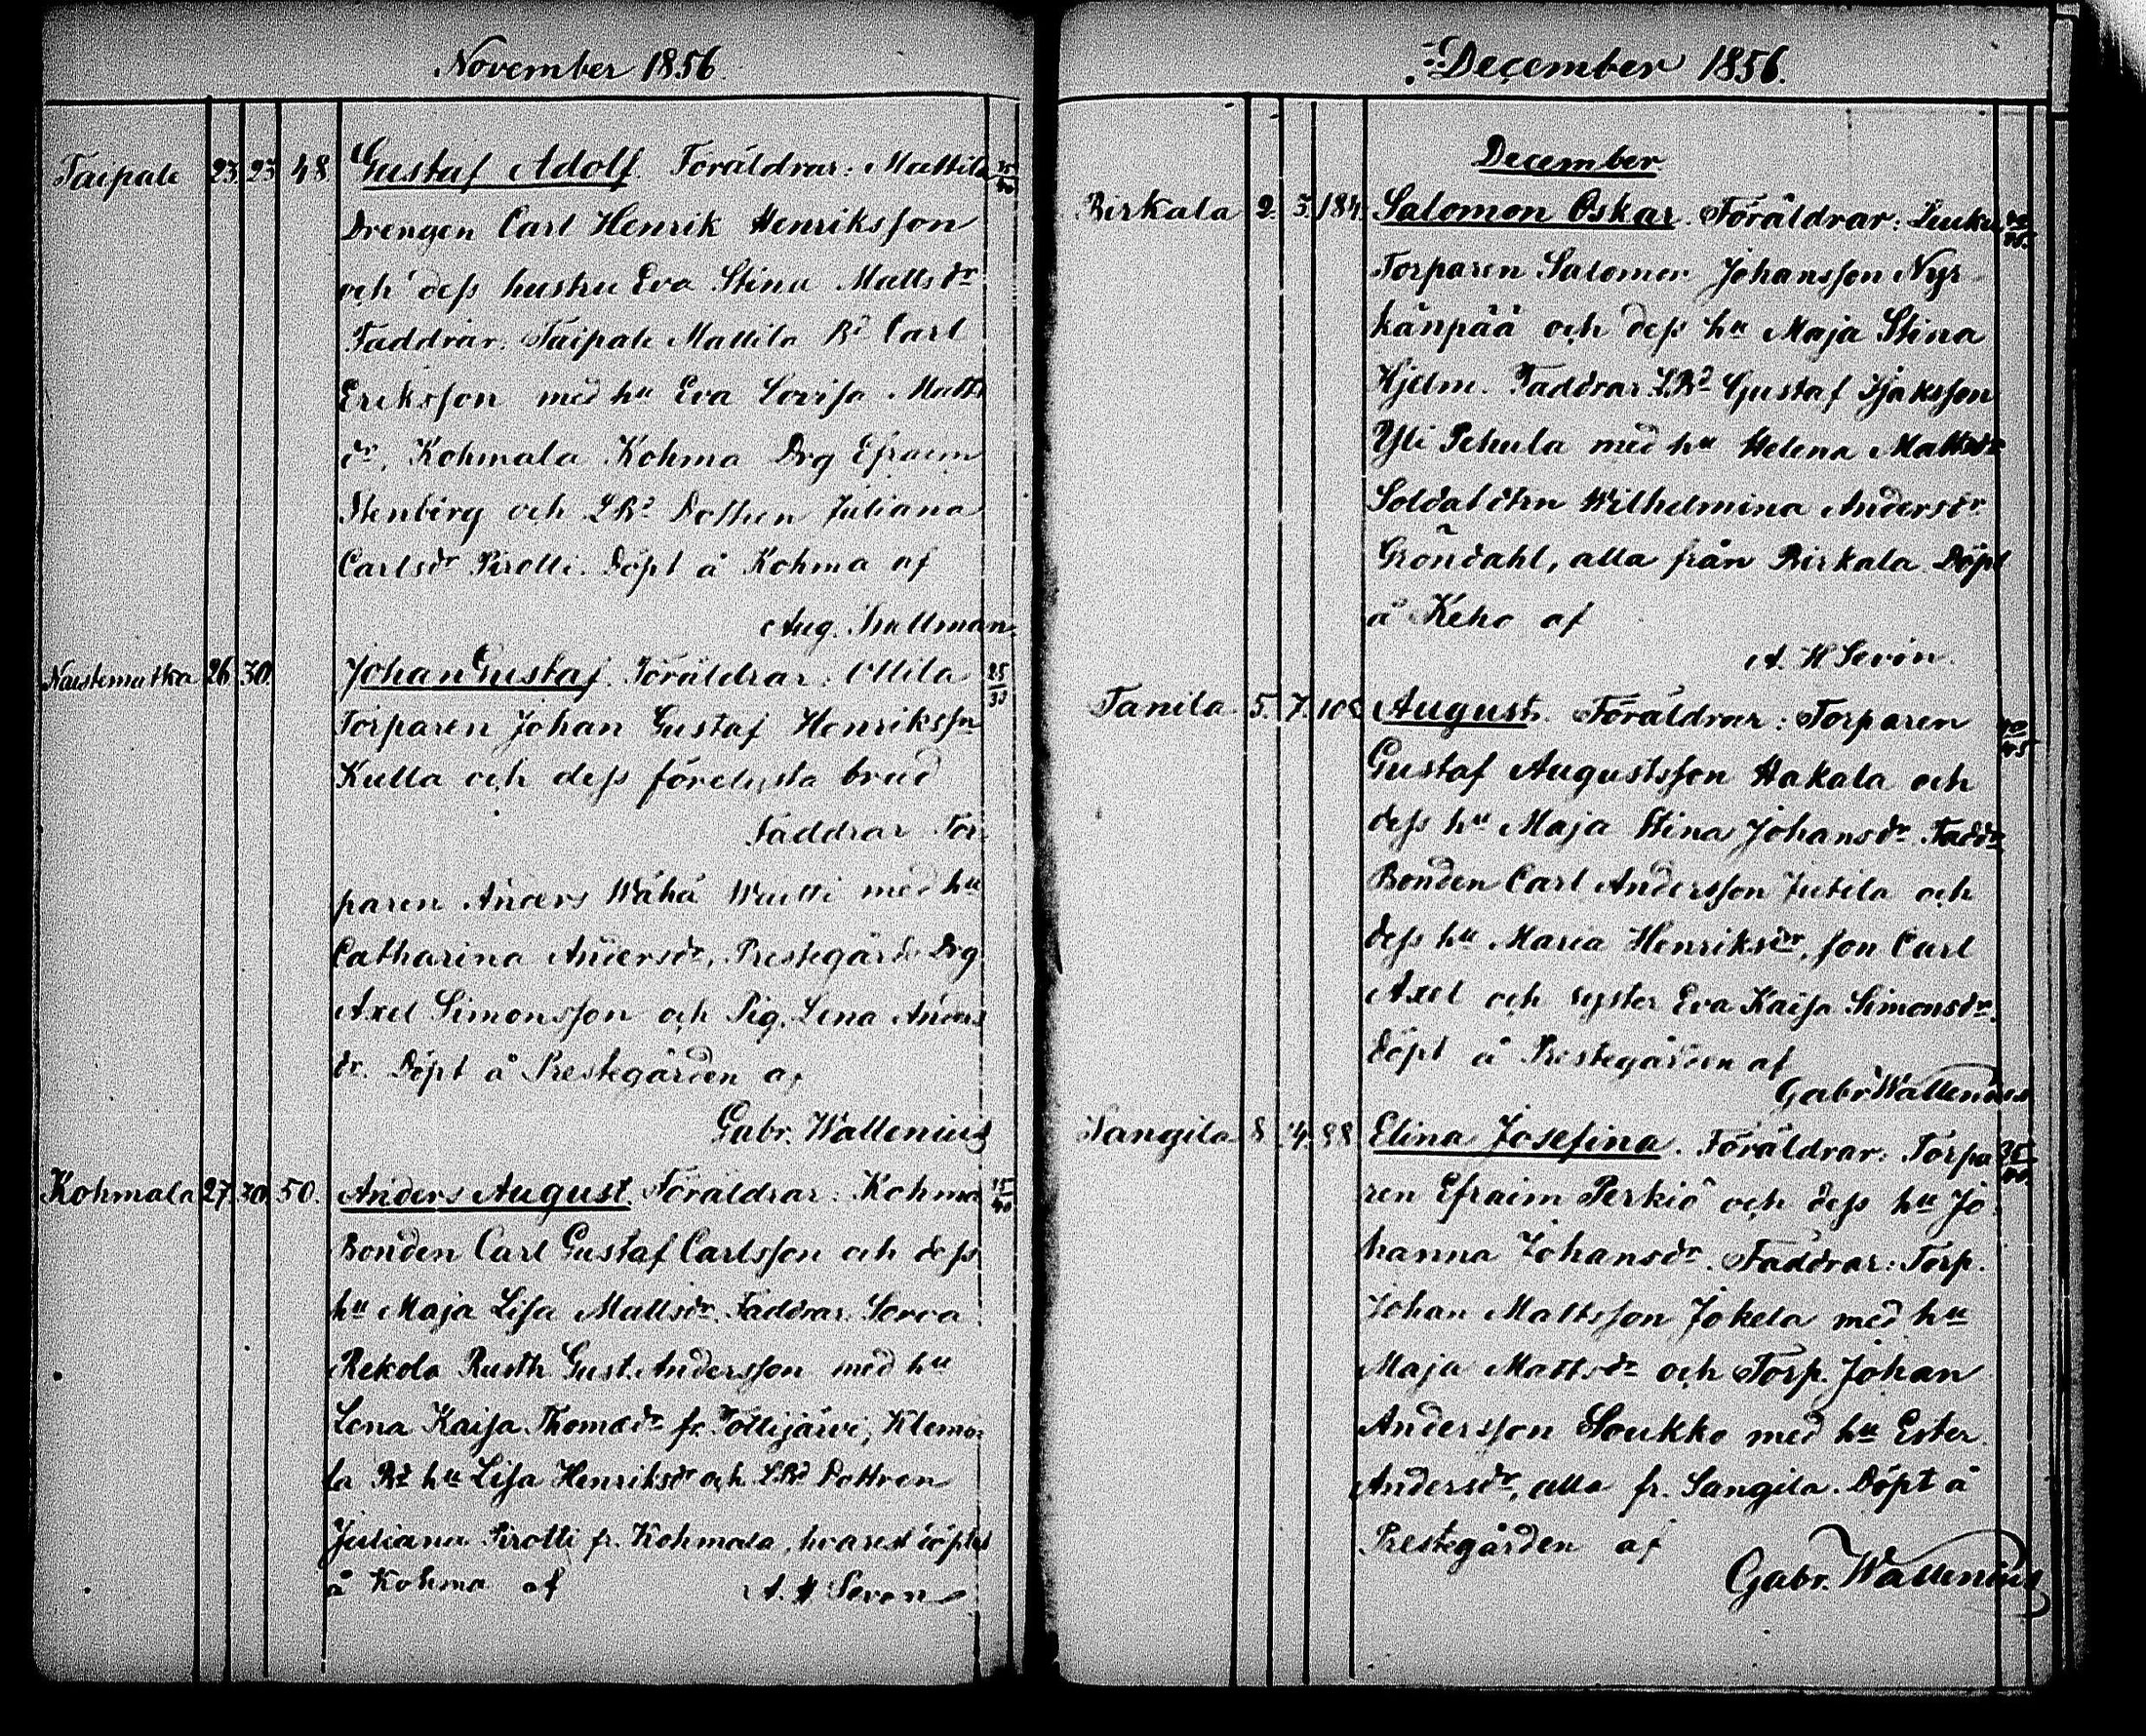 November 1856.
Taipale 23. 23 48 Gustaf Adolf. Föräldrar: Mattila 35/40
Drengen Carl Henrik Henriksson
och dess hustru Eva Stina Mattsdr
Faddrar: Taipale Mattila Bd Carl
Eriksson med hu Eva Lovisa Matts
dr, Kohmala Kohma Drg Efraim
Stenberg och LBd Dottren Juliana
Carlsdr Pirotti. Döpt å Kohma af
Aug.
Naistematka 26. 30. Johan Gustaf. Föräldrar: Ottila 25/30
Torparen Johan Gustaf Henrikssn
Kulla och dess förelysta brud
Faddrar Tor
paren Anders Wähä Wuitti med hu
Catharina Andersdr, Prestegårds Drg
Axel Simonsson och Pig. Lena Anders
dr. Döpt å Prestegården af
Gabr. Wallenius
Kohmala 27. 30. 50. Anders August. Föräldrar: Kohma 35/40
Bonden Carl Gustaf Carlsson och dess
hu Maja Lisa Mattsdr. Faddrar: Sorva
Rekola Rusth. Gust. Andersson med hu
Lena Kaisa Thomasdr fr. Tottijärvi, Klemo-
la Bd hu Lisa Henriksdr och LBd Dottren
Juliana Pirotti fr. Kohmala, hvarest döptes
å Kohma af A. H Sevon
December 1856.
December.
Birkala 2. 3. 184. Salomon Oskar. Föräldrar: Luuku 40/45
Torparen Salomon Johansson Nyr-
känpää och dess hu Maja Stina
Hjelm. Faddrar LBd Gustaf Isaksson
Yli Pehula med hu Helena Mattsdr
Soldatdtrn Wilhelmina Andersdr
Gröndahl, alla från Birkala. Döpt
å Keho af
A. H Sevón.
Tanila. 5. 7. August. Föräldrar: Torparen 40/45
Gustaf Augustsson Hakala och
dess hu Maja Stina Johansdr. Faddr
Bonden Carl Andersson Jutila och
dess hu Maria Henriksdr, son Carl
Axel och syster Eva Kaisa Simonsdr.
Döpt å Prestegården af
Gabr Wallenius
Sangila 8. 14. 98. Elina Josefina. Föräldrar: Torpa
ren Efraim Perkiö och dess hu Jo-
hanna Johansdr. Faddrar: Torp.
Johan Mattsson Jokela med hu
Maja Mattsdr och Torp. Johan
Andersson Soukko med hu Ester
Andersdr, alla fr. Sangila. Döpt å
Prestegården af
Gabr. Wallenius